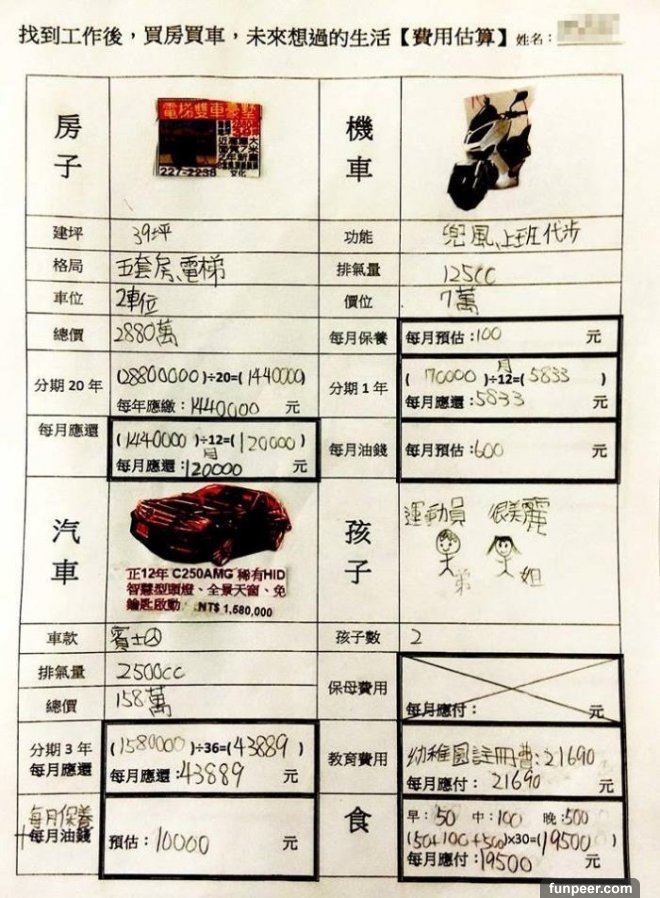 找到工作後，買房買車，未來想過的生活【費用估算】姓名：
房子
電梯雙車豪墅
227-2238
建坪
39坪
格局
五套房、電梯
車位
2車位
總價
2880萬
分期 20 年
(28800000)÷20=(1440000)
每年應繳：1440000 元
每月應還
(1440000)÷12=(120000)
月
每月應還：120000 元
機車
功能
兜風、上班代步
排氣量
125cc
價位
7萬
每月保養
每月預估：100 元
分期 1 年
月
(70000)÷12=(5833)
每月應還：5833 元
每月油錢
每月預估：600 元
汽車
正12年 C250AMG 稀有HID
智慧型頭燈、全景天窗、免
鑰匙啟動 NT$ 1,580,000
車款
賓士
排氣量
2500cc
總價
158萬
分期 3 年
每月應還
(1580000)÷36=(43889)
每月應還：43889 元
每月保養
+每月油錢
預估：10000 元
孩子
運動員 很美麗
弟 姐
孩子數
2
保母費用
每月應付： 元
教育費用
幼稚園註冊費：21690
每月應付：21690 元
食
早：50 中：100 晚：500
(50+100+500)×30=(19500)
每月應付：19500 元
funpeer.com